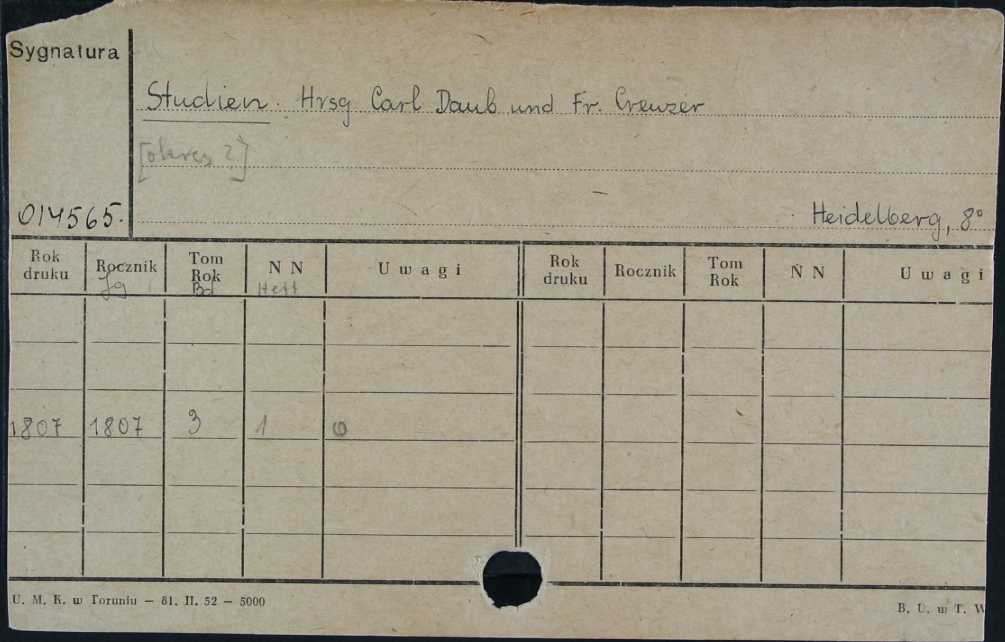 Sygnatura
Studien. Hrsg Carl Daub und Fr. Creuzer
[okres ?]
014565.
Heidelberg, 8°
Rok druku Rocznik Tom Rok N N Uwagi Rok druku Rocznik Tom Rok N N Uwagi
Jg Bd Heft
1807 1807 3 1
U. M. K. w Toruniu — 81. II. 52 — 5000
B. U. w T. W